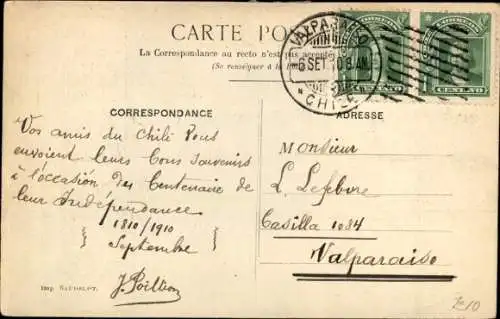 CARTE
La Correspondance au recto n'est pas acceptée
(Se renseigner à la
VALPARAISO
6 SET 10 8 AM
CHILE
CORREOS
CENTAVO
CORREOS
CENTAVO
CORRESPONDANCE
ADRESSE
Vos amis du Chili Vous
envoient leurs bons souvenirs
à l'occasion du Centenaire de
leur Indépendance
1810/1910
Septembre
J. Poillion
Monsieur
L. Lefebvre
Casilla 1084
Valparaiso
Imp.